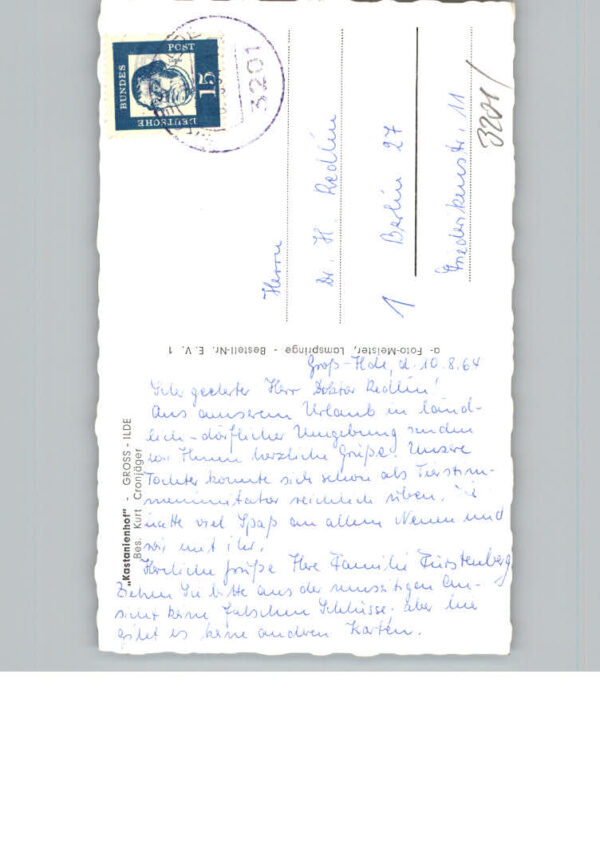 Groß-Ilde, d. 10.8.64
Sehr geehrter Herr Doktor Redlin!
Aus unserem Urlaub in länd-
lich-dörflicher Umgebung senden
wir Ihnen herzliche Grüße. Unsere
Tochter konnte sich schon als Tierstim-
menimitator reichlich üben. Sie
hatte viel Spaß an allem Neuen und
wir mit ihr.
Herzliche Grüße Ihre Familie Fürstenberg
Ziehen Sie bitte aus der umseitigen An-
sicht keine falschen Schlüsse. Aber hier
gibt es keine anderen Karten.
Herrn
Dr. H. Redlin
1 Berlin 27
Friederikenstr. 11
3201/
"Kastanienhof" - GROSS-ILDE
Bes. Kurt Cronjäger
a- Foto-Meister, Lamspringe - Bestell-Nr. E. V. 1
DEUTSCHE BUNDESPOST
15
3201